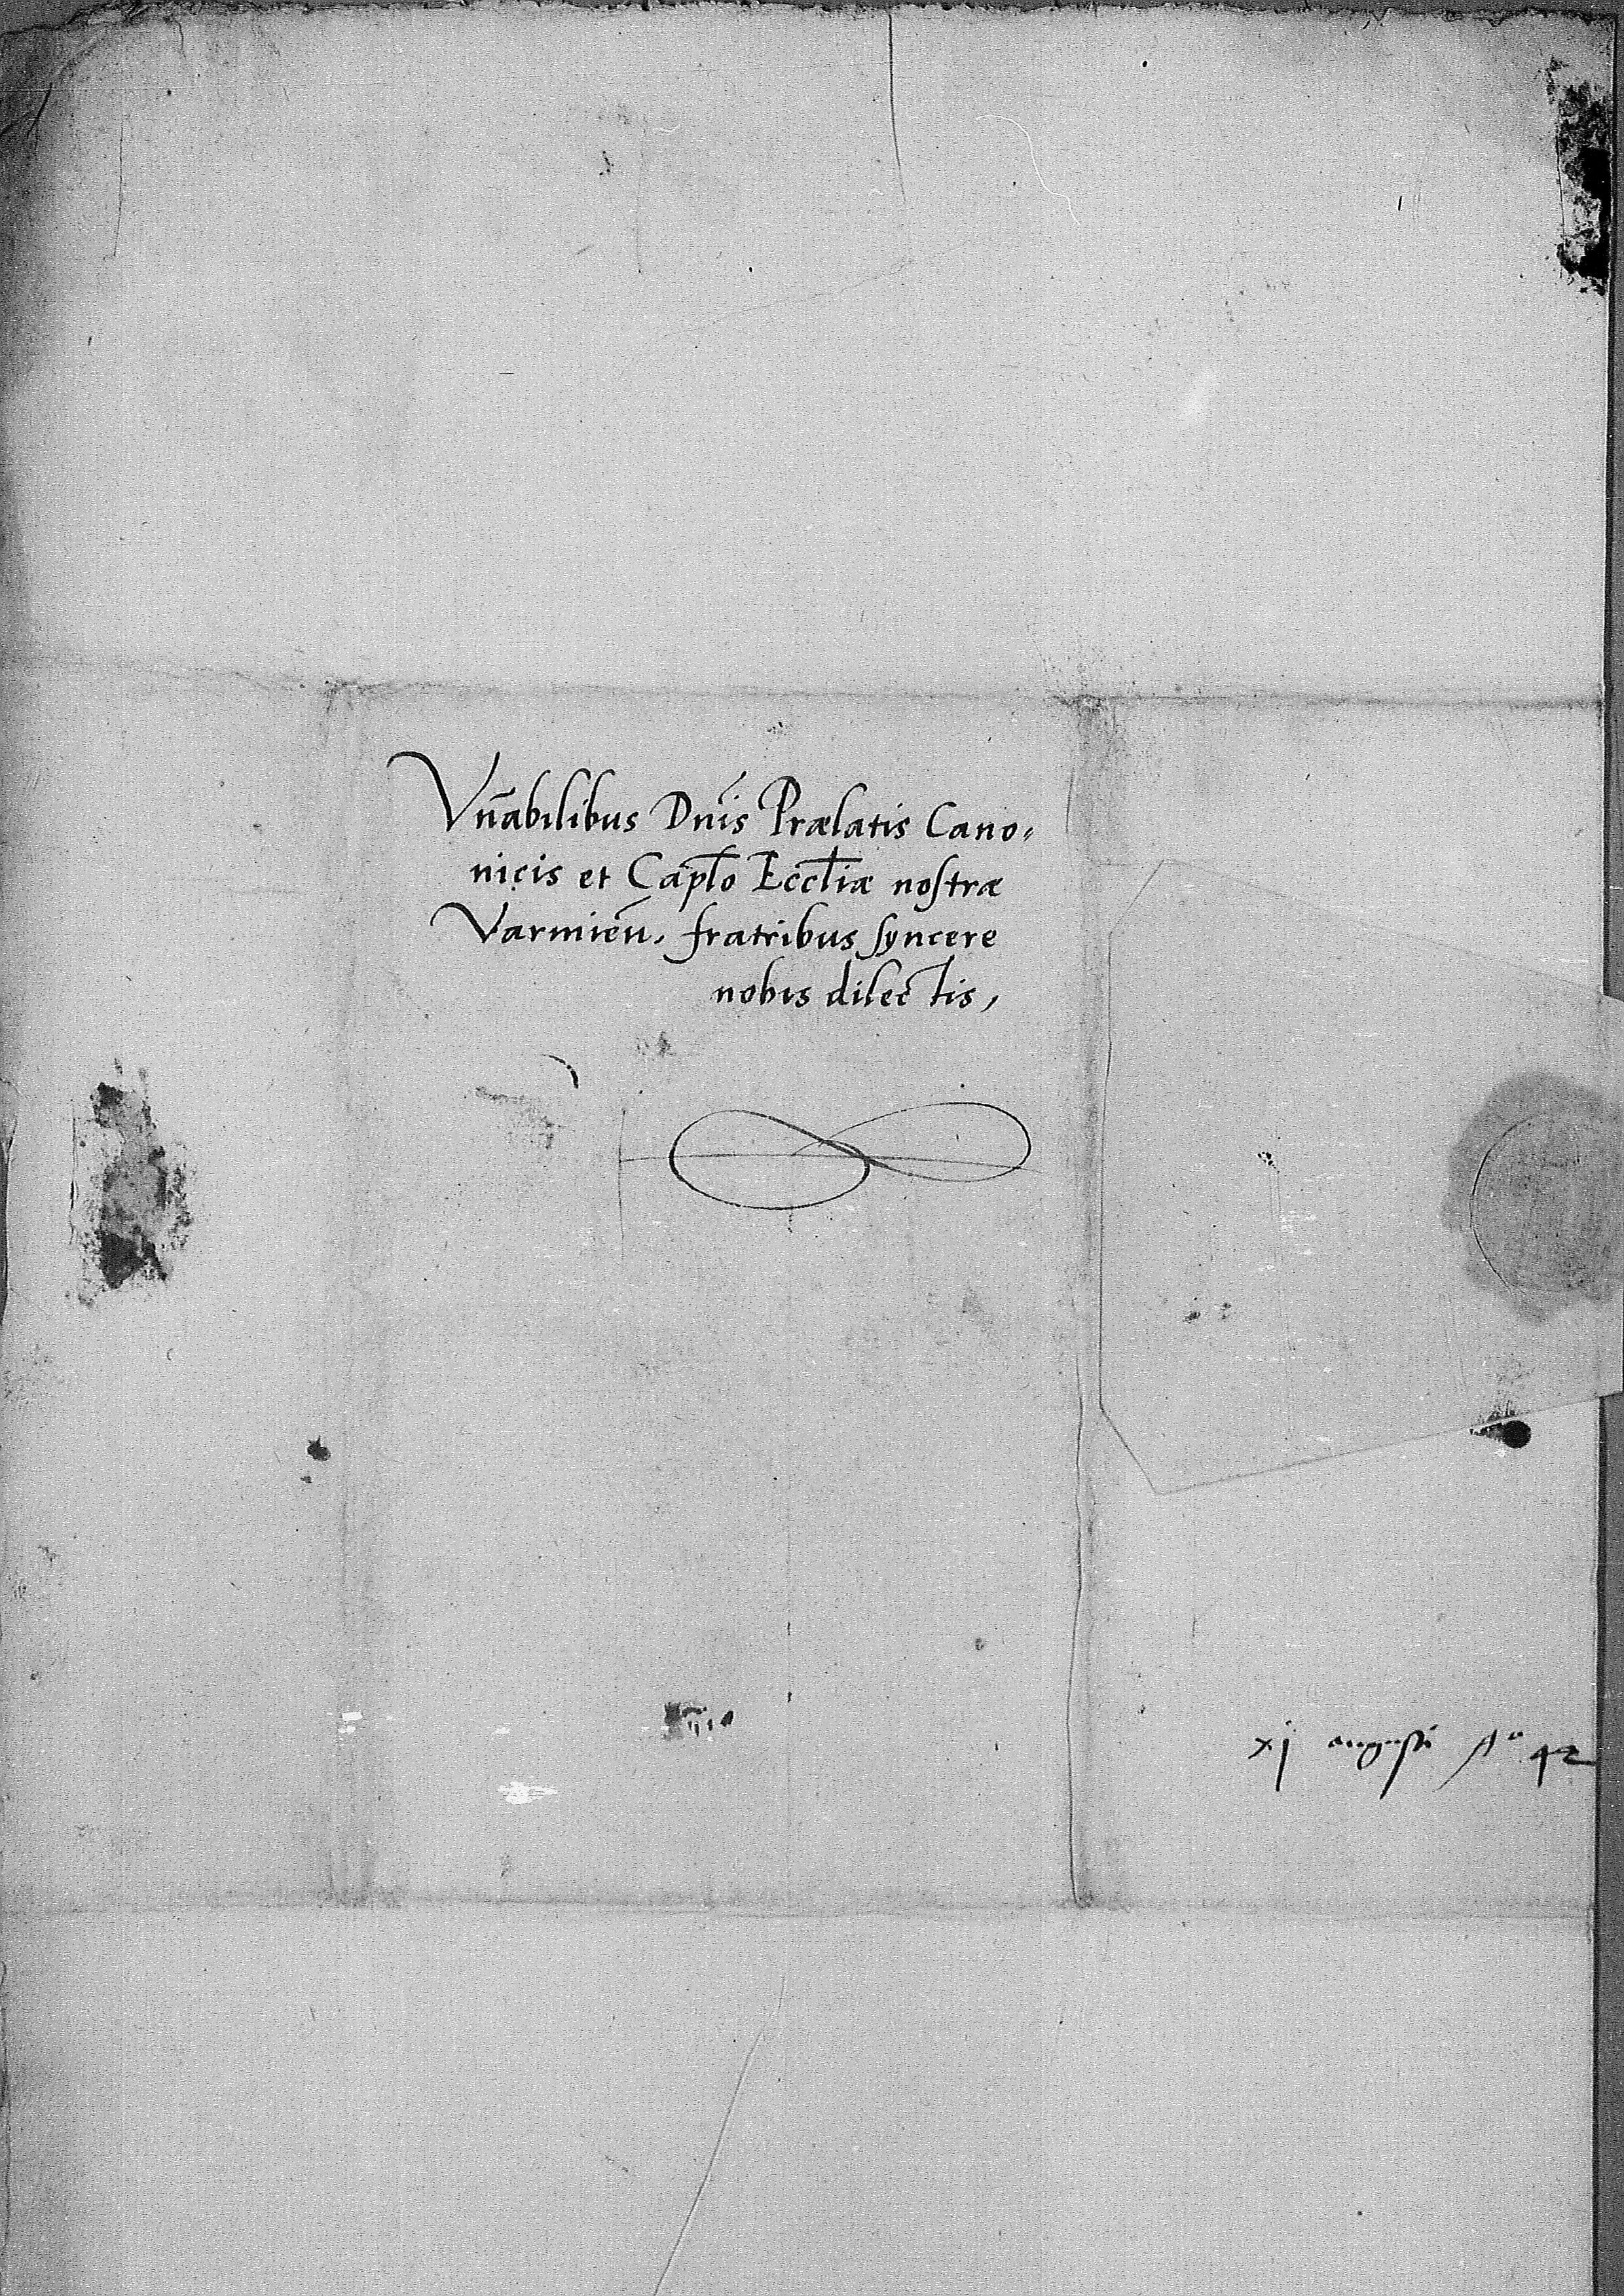 Vn̄abilibus Dn̄is Prælatis Cano-
nicis et Capl̄o Eccl̄iæ noſtræ
Varmien̄, fratribus ſyncere
nobis dilectis,
xj auguſti Aº 42